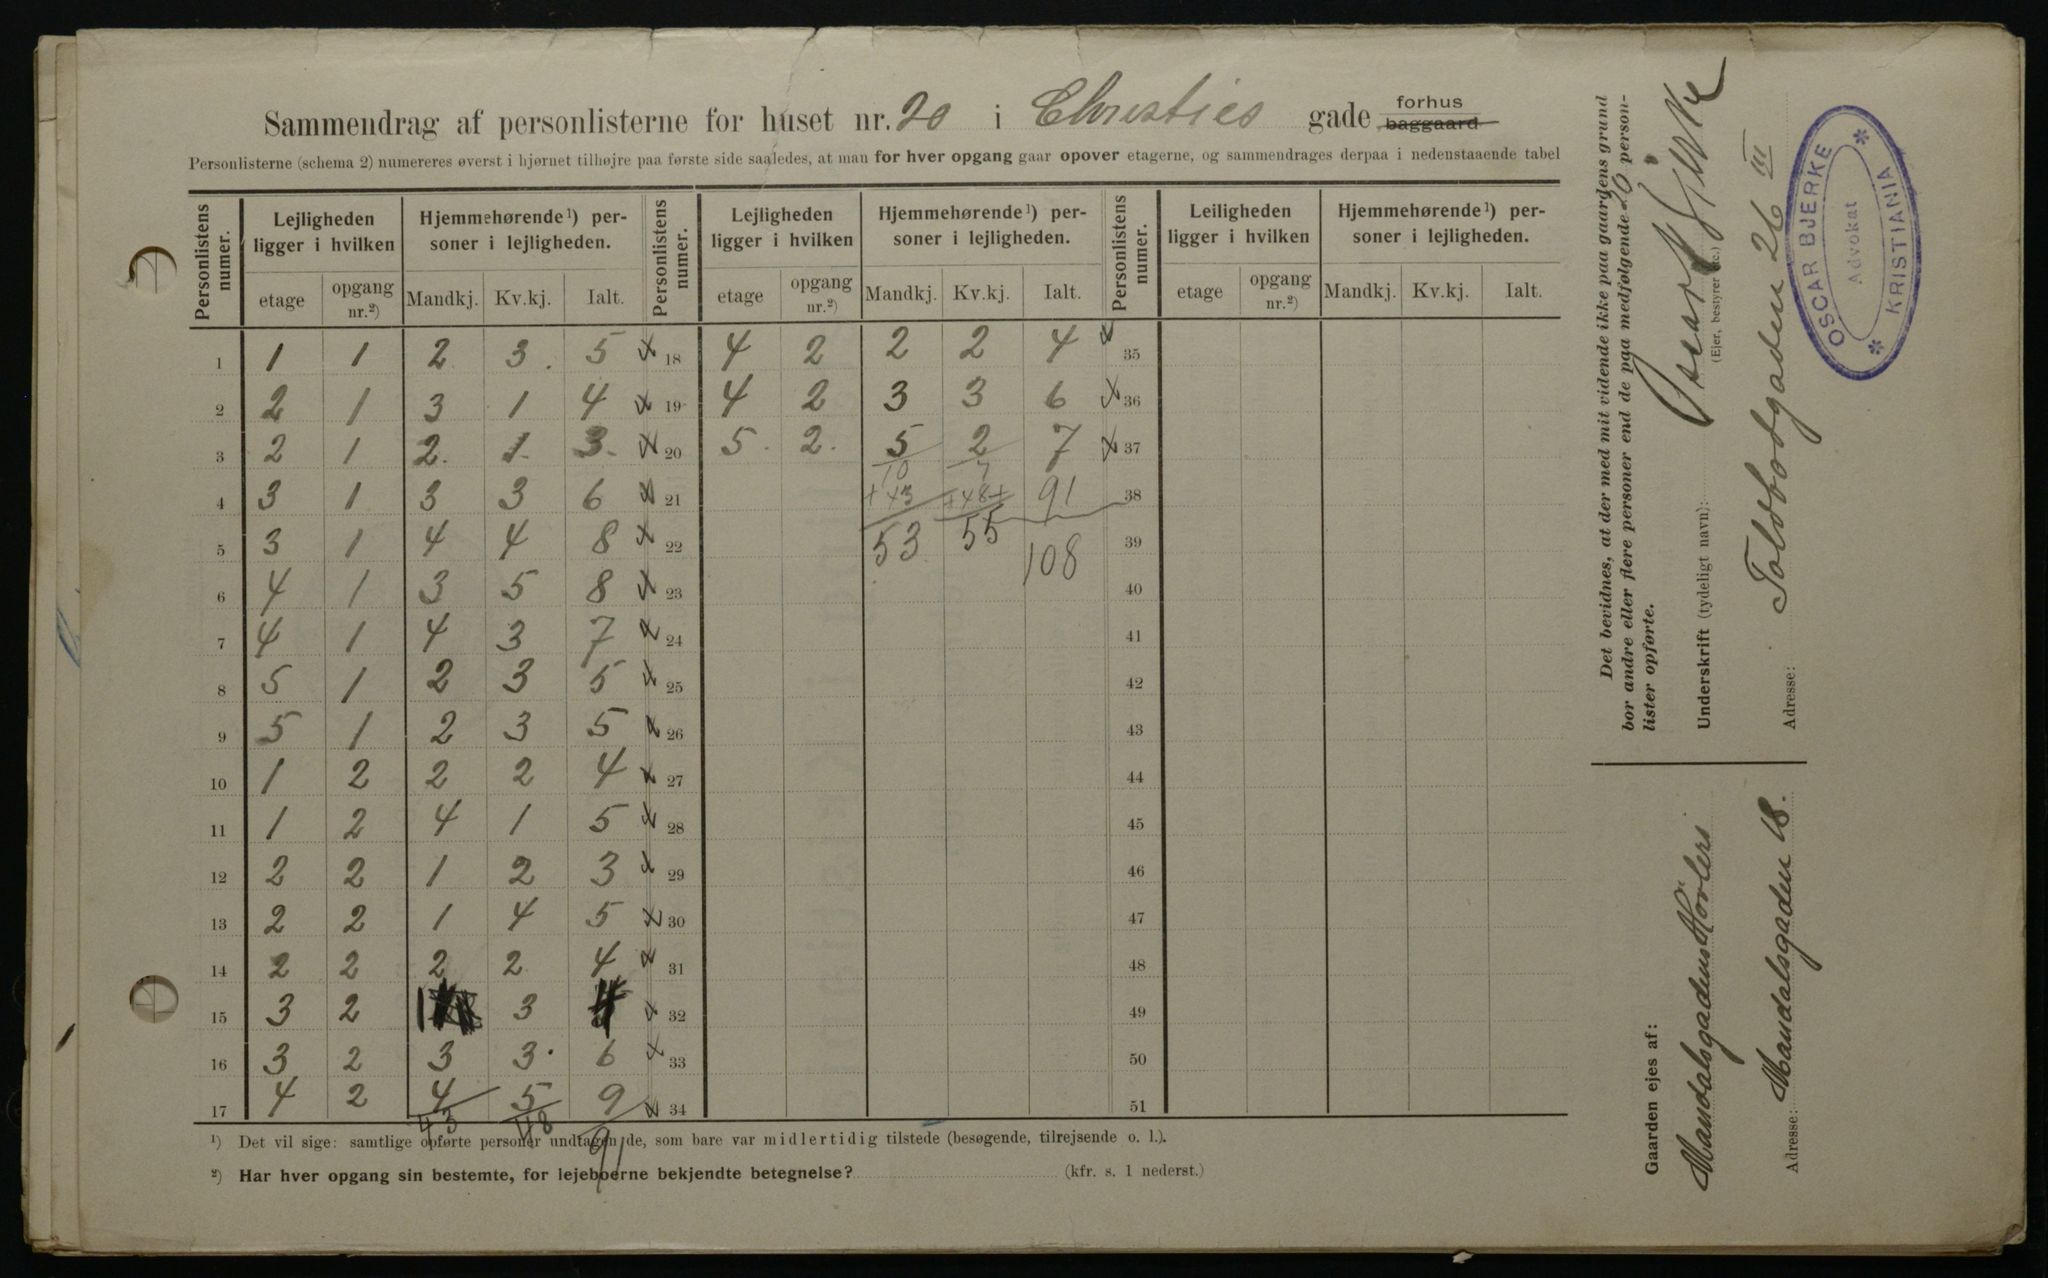 Sammendrag af personlisterne for huset nr. 20 i Christies gade forhus baggaard
Personlisterne (schema 2) numereres øverst i hjørnet tilhøjre paa første side saaledes, at man for hver opgang gaar opover etagerne, og sammendrages derpaa i nedenstaaende tabel
Personlistens numer. Lejligheden ligger i hvilken Hjemmehørende¹) personer i lejligheden. Personlistens numer. Lejligheden ligger i hvilken Hjemmehørende¹) personer i lejligheden. Personlistens numer. Leiligheden ligger i hvilken Hjemmehørende¹) personer i lejligheden.
etage opgang nr.²) Mandkj. Kv.kj. Ialt. etage opgang nr.²) Mandkj. Kv.kj. Ialt. etage opgang nr.²) Mandkj. Kv.kj. Ialt.
1 1 1 2 3 5 x 18 4 2 2 2 4 x 35
2 2 1 3 1 4 x 19 4 2 3 3 6 x 36
3 2 1 2 1 3 x 20 5 2 5 2 7 x 37
10 7
4 3 1 3 3 6 x 21 +43 +48+ 91 38
5 3 1 4 4 8 x 22 53 55 108 39
6 4 1 3 5 8 x 23 40
7 4 1 4 3 7 x 24 41
8 5 1 2 3 5 x 25 42
9 5 1 2 3 5 x 26 43
10 1 2 2 2 4 x 27 44
11 1 2 4 1 5 x 28 45
12 2 2 1 2 3 x 29 46
13 2 2 1 4 5 x 30 47
14 2 2 2 2 4 x 31 48
15 3 2 1 3 4 x 32 49
16 3 2 3 3 6 x 33 50
17 4 2 4 5 9 x 34 51
43 48 91
¹) Det vil sige: samtlige opførte personer undtagen de, som bare var midlertidig tilstede (besøgende, tilrejsende o. l.).
²) Har hver opgang sin bestemte, for lejeboerne bekjendte betegnelse? (kfr. s. 1 nederst.)
Det bevidnes, at der med mit vidende ikke paa gaardens grund
bor andre eller flere personer end de paa medfølgende 20 person-
lister opførte.
Underskrift (tydeligt navn): Oscar Bjerke
(Ejer, bestyrer etc.)
Adresse: Toldbodgaden 26 III
OSCAR BJERKE
Advokat
* KRISTIANIA *
Gaarden ejes af:
Mandalsgadens
Adresse: Mandalsgaden 18.